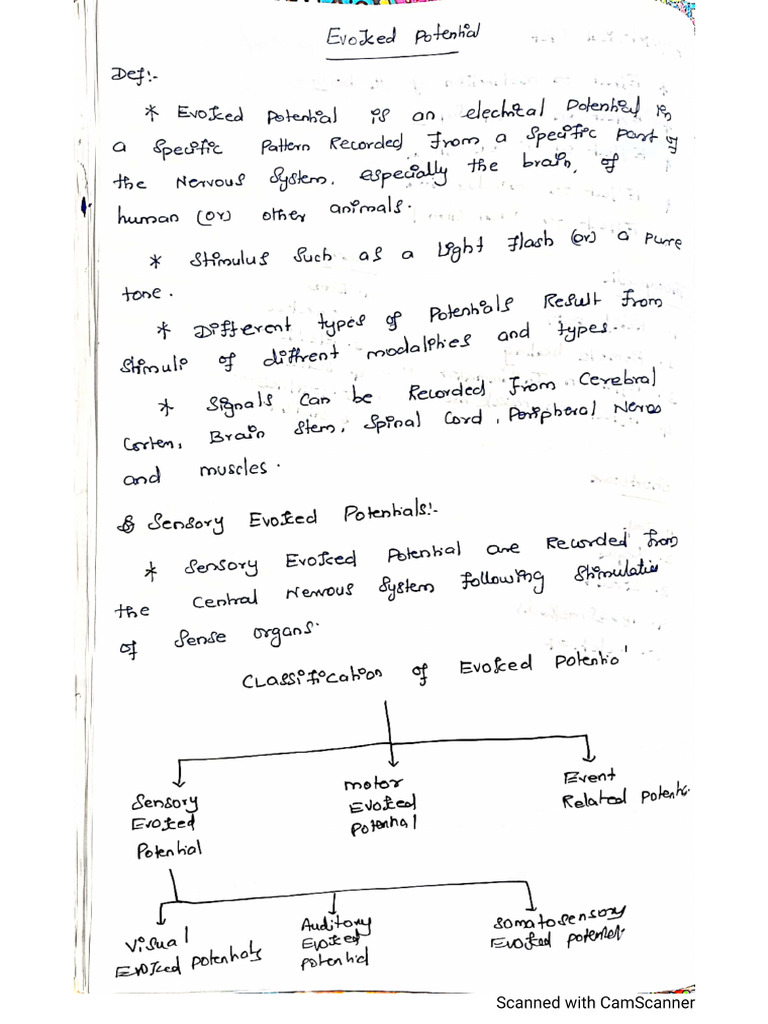 Evoked Potential
Def:-
* Evoked Potential is an electrical Potential in
a Specific Pattern Recorded from a Specific Part of
the Nervous System, especially the brain, of
human (or) other animals.
* Stimulus Such as a Light flash (or) a Pure
tone.
* Different types of Potentials Result from
Stimuli of diffrent modalities and types.
* Signals can be Recorded from Cerebral
Cortex, Brain Stem, Spinal Cord, Peripheral Nerves
and muscles.
Sensory Evoked Potentials:-
* Sensory Evoked Potential are Recorded from
the Central Nervous System following Stimulation
of Sense organs.
Classification of Evoked Potential
Sensory Evoked Potential
motor Evoked Potential
Event Related Potenti
Visual Evoked Potentials
Auditory Evoked Potential
Somatosensory Evoked Potential
Scanned with CamScanner